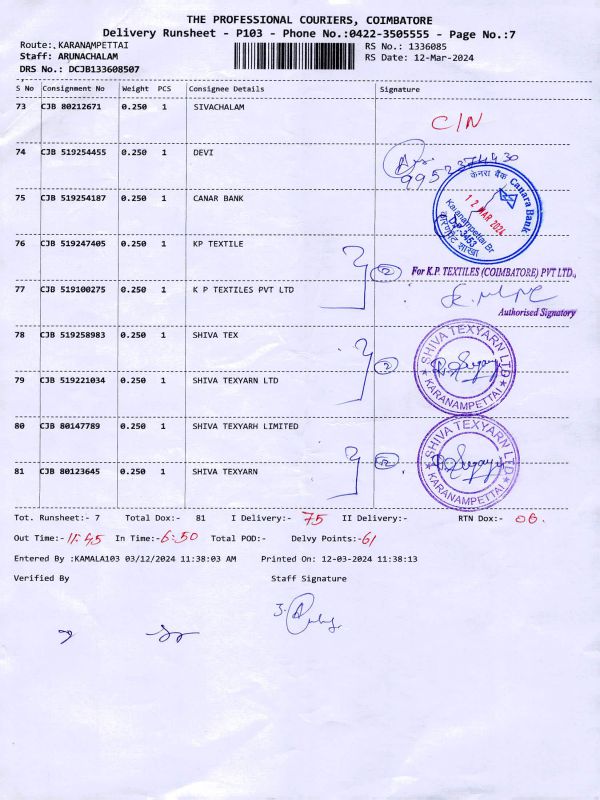 THE PROFESSIONAL COURIERS, COIMBATORE
Delivery Runsheet - P103 - Phone No.:0422-3505555 - Page No.:7
Route:. KARANAMPETTAI
RS No.: 1336085
Staff: ARUNACHALAM
RS Date: 12-Mar-2024
DRS No.: DCJB133608507
S No Consignment No Weight PCS Consignee Details Signature
73 CJB 80212671 0.250 1 SIVACHALAM
C/N
74 CJB 519254455 0.250 1 DEVI
9952374430
75 CJB 519254187 0.250 1 CANAR BANK
केनरा बैंक Canara Bank
12 MAR 2024
Karanampettai Br
76 CJB 519247405 0.250 1 KP TEXTILE
2 For K.P. TEXTILES (COIMBATORE) PVT LTD.,
77 CJB 519100275 0.250 1 K P TEXTILES PVT LTD
Authorised Signatory
78 CJB 519258983 0.250 1 SHIVA TEX
2 SHIVA TEXYARN LTD KARANAMPETTAI
79 CJB 519221034 0.250 1 SHIVA TEXYARN LTD
80 CJB 80147789 0.250 1 SHIVA TEXYARH LIMITED
2 SHIVA TEXYARN LTD KARANAMPETTAI
81 CJB 80123645 0.250 1 SHIVA TEXYARN
Tot. Runsheet:- 7 Total Dox:- 81 I Delivery:- 75 II Delivery:- RTN Dox:- 06.
Out Time:- 11:45 In Time:- 6:50 Total POD:- Delvy Points:- 61
Entered By :KAMALA103 03/12/2024 11:38:03 AM Printed On: 12-03-2024 11:38:13
Verified By Staff Signature